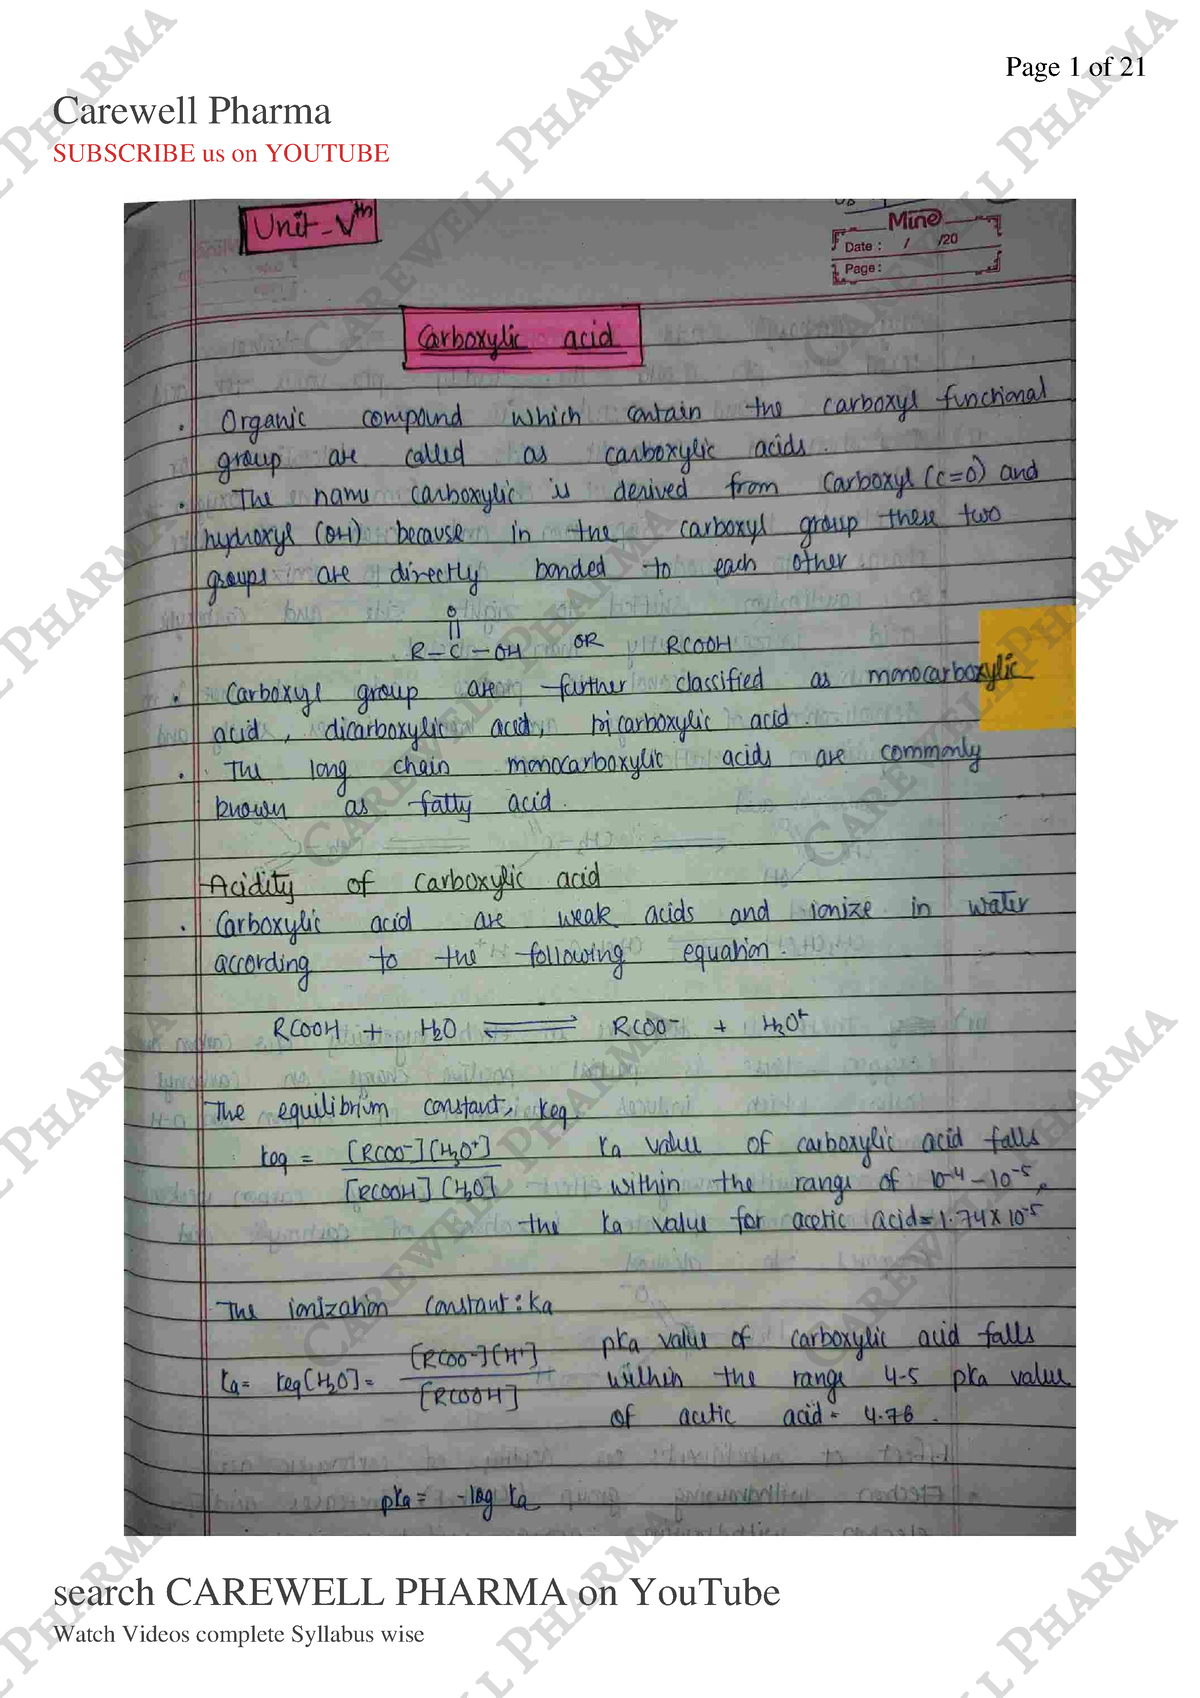 Page 1 of 21
Carewell Pharma
SUBSCRIBE us on YOUTUBE
Unit-Vth
Mine
Date : / /20
Page:
Carboxylic acid
• Organic compound which contain the carboxyl functional
group are called as carboxylic acids.
• The name carboxylic is derived from Carboxyl (C=O) and
hydroxyl (OH) because in the carboxyl group these two
groups are directly bonded to each other.
O
||
R-C-OH OR RCOOH
• Carboxyl group are further classified as monocarboxylic
acid, dicarboxylic acid, tricarboxylic acid.
• The long chain monocarboxylic acids are commonly
known as fatty acid.
Acidity of carboxylic acid
• Carboxylic acid are weak acids and ionize in water
according to the following equation.
RCOOH + H2O ⇌ RCOO- + H3O+
The equilibrium constant, Keq.
Keq = [RCOO-][H3O+] / [RCOOH][H2O]
Ka value of carboxylic acid falls
within the range of 10-4 - 10-5,
the Ka value for acetic acid = 1.74 x 10-5
The ionization constant : Ka
Ka = Keq[H2O] = [RCOO-][H+] / [RCOOH]
pka value of carboxylic acid falls
within the range 4-5 pka value
of acetic acid = 4.76.
pka = -log Ka
search CAREWELL PHARMA on YouTube
Watch Videos complete Syllabus wise
CAREWELL PHARMA